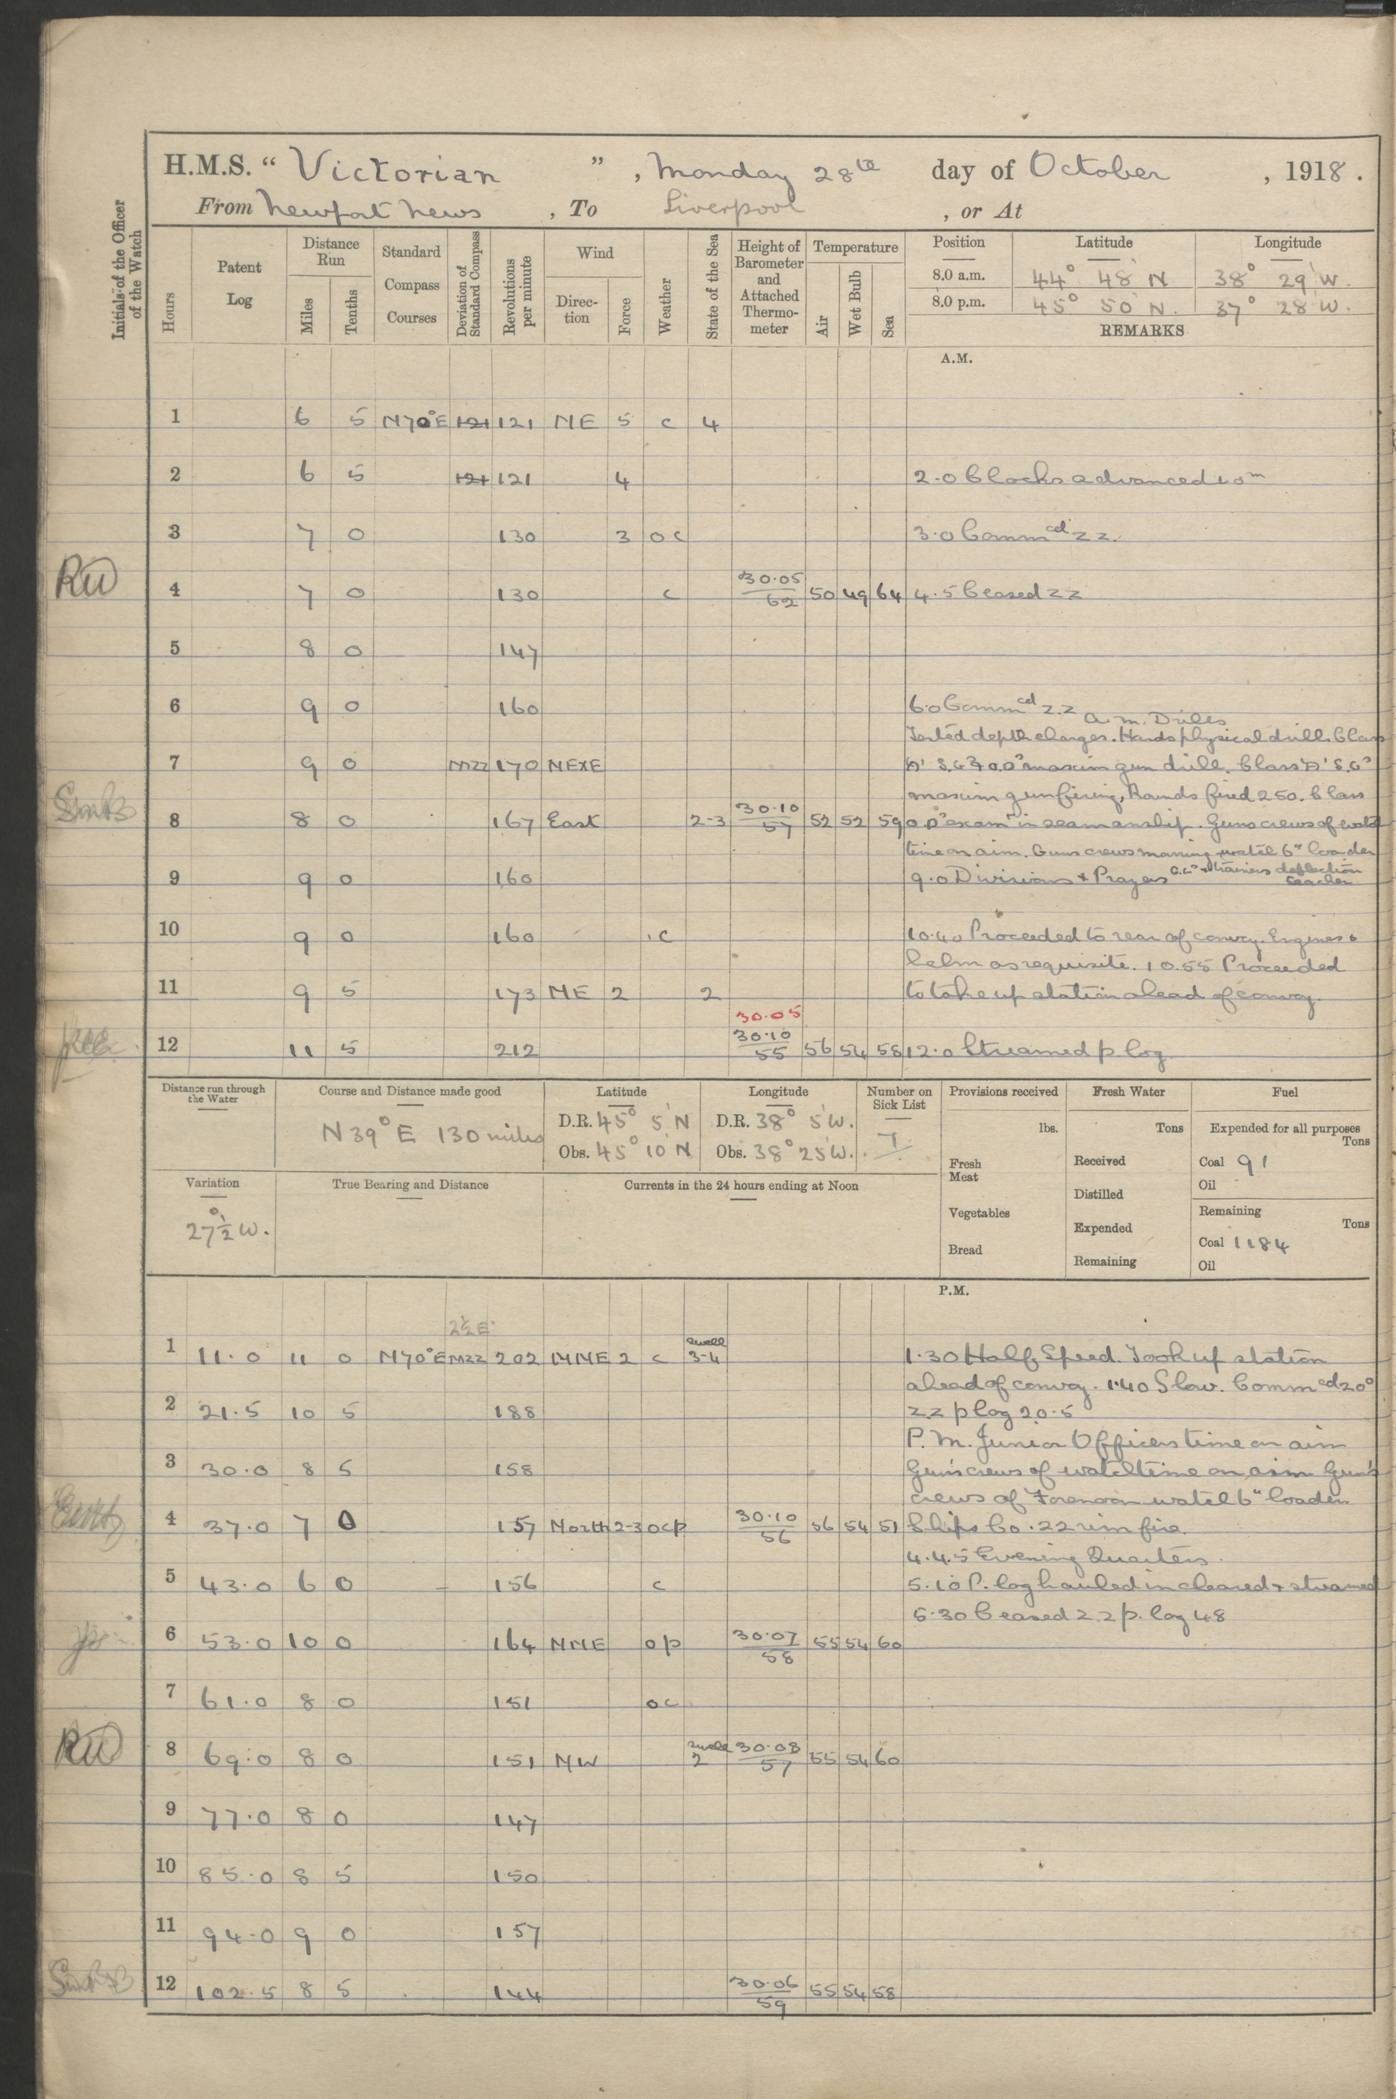 H.M.S. “ Victorian ” , Monday 28th day of October , 1918 .
From Newport News , To Liverpool , or At
Initials of the Officer of the Watch
Hours
Patent Log
Distance Run
Miles
Tenths
Standard Compass Courses
Deviation of Standard Compass
Revolutions per minute
Wind
Direc-tion
Force
Weather
State of the Sea
Height of Barometer and Attached Thermo-meter
Temperature
Air
Wet Bulb
Sea
Position Latitude Longitude
8.0 a.m. 44° 48' N 38° 29' W.
8.0 p.m. 45° 50' N. 37° 28' W.
REMARKS
A.M.
1 6 5 N70°E 121 121 NE 5 c 4
2 6 5 121 121 4 2.0 Clocks advanced 10m
3 7 0 130 3 oc 3.0 Commced zz.
RW 4 7 0 130 c 30.05/62 50 49 64 4.5 Ceased zz
5 8 0 147
6 9 0 160 6.0 Commced z.z a.m. Drills
Tested depth charges. Hands physical drill. Class
7 9 0 mzz 170 NExE maxim gun drill. Class
maxim gun firing, Rounds fired 250. Class
8 8 0 167 East 2-3 30.10/57 52 52 59 O.D.s examn in seamanship. Guns crews of watch
time on aim. Guns crews morning watch 6" loader
9 9 0 160 9.0 Divisions & Prayers trainers deflection teacher
10 9 0 160 .c 10.40 Proceeded to rear of convoy. Engines &
helm as requisite. 10.55 Proceeded
11 9 5 173 NE 2 2 to take up station ahead of convoy.
30.05
12 11 5 212 30.10/55 56 54 58 12.0 Streamed p log
Distance run through the Water
Course and Distance made good
N 39° E 130 miles
Latitude
D.R. 45° 5' N
Obs. 45° 10' N
Longitude
D.R. 38° 5' W.
Obs. 38° 25' W.
Number on Sick List
7
Provisions received
lbs.
Fresh Meat
Vegetables
Bread
Fresh Water
Tons
Received
Distilled
Expended
Remaining
Fuel
Expended for all purposes
Tons
Coal 91
Oil
Remaining
Tons
Coal 1184
Oil
Variation
27½° W.
True Bearing and Distance
Currents in the 24 hours ending at Noon
P.M.
2½ E
swell
1 11.0 11 0 N70°E mzz 202 NNE 2 c 3-4 1.30 Half Speed. Took up station
ahead of convoy. 1.40 Slow. Commced 20°
2 21.5 10 5 188 zz p log 20.5
P.M. Junior Officers time on aim
3 30.0 8 5 158 Gun's crews of watch time on aim Gun's
crews of Forenoon watch 6" loader
4 37.0 7 0 157 North 2-3 ocp 30.10/56 56 54 51 Ships Co. .22 rim fire.
4.45 Evening Quarters.
5 43.0 6 0 156 c 5.10 P. log hauled in cleared & streamed
5.30 Ceased z.z p. log 48
6 53.0 10 0 164 NNE op 30.07/58 55 54 60
7 61.0 8 0 151 oc
swell
RW 8 69.0 8 0 151 NW 2 30.08/57 55 54 60
9 77.0 8 0 147
10 85.0 8 5 150
11 94.0 9 0 157
12 102.5 8 5 144 30.06/59 55 54 58